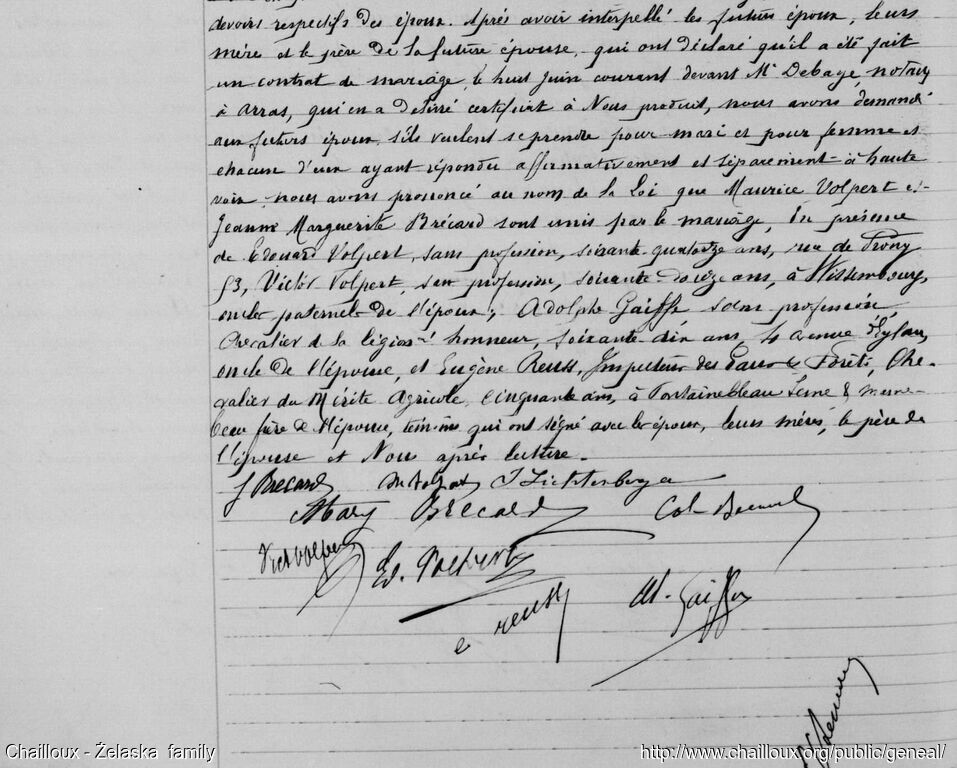 devoirs respectifs des époux. Après avoir interpellé les futurs époux, leurs
mère et le père de la future épouse, qui ont déclaré qu'il a été fait
un contrat de mariage, le huit Juin courant devant Me Debage, notaire
à Arras, qui en a délivré certificat à Nous produit, nous avons demandé
aux futurs époux s'ils veulent se prendre pour mari et pour femme et
chacun d'eux ayant répondu affirmativement et séparément à haute
voix, nous avons prononcé au nom de la Loi que Maurice Volpert et
Jeanne Marguerite Brécard sont unis par le mariage, En présence
de Edouard Volpert, sans profession, soixante quatorze ans, rue de Prony
53, Victor Volpert, sans profession, soixante douze ans, à Wissembourg,
oncles paternels de l'époux; Adolphe Gaiffe, sans profession,
Chevalier de la légion d'honneur, soixante dix ans, avenue d'Eylau,
oncle de l'épouse, et Eugène Reuss, Inspecteur des Eaux & Forêts, Che-
valier du Mérite Agricole, cinquante ans, à Fontainebleau Seine & Marne
beau frère de l'épouse, témoins qui ont signé avec les époux, leurs mères, le père de
l'épouse et Nous après lecture.
J Brecard M Volpert J Lichtenberger
Mary Brecard
Vict Volpert
Ed. Volpert
e reuss Ad. Gaiffe
Chailloux - Żelaska family http://www.chailloux.org/public/geneal/